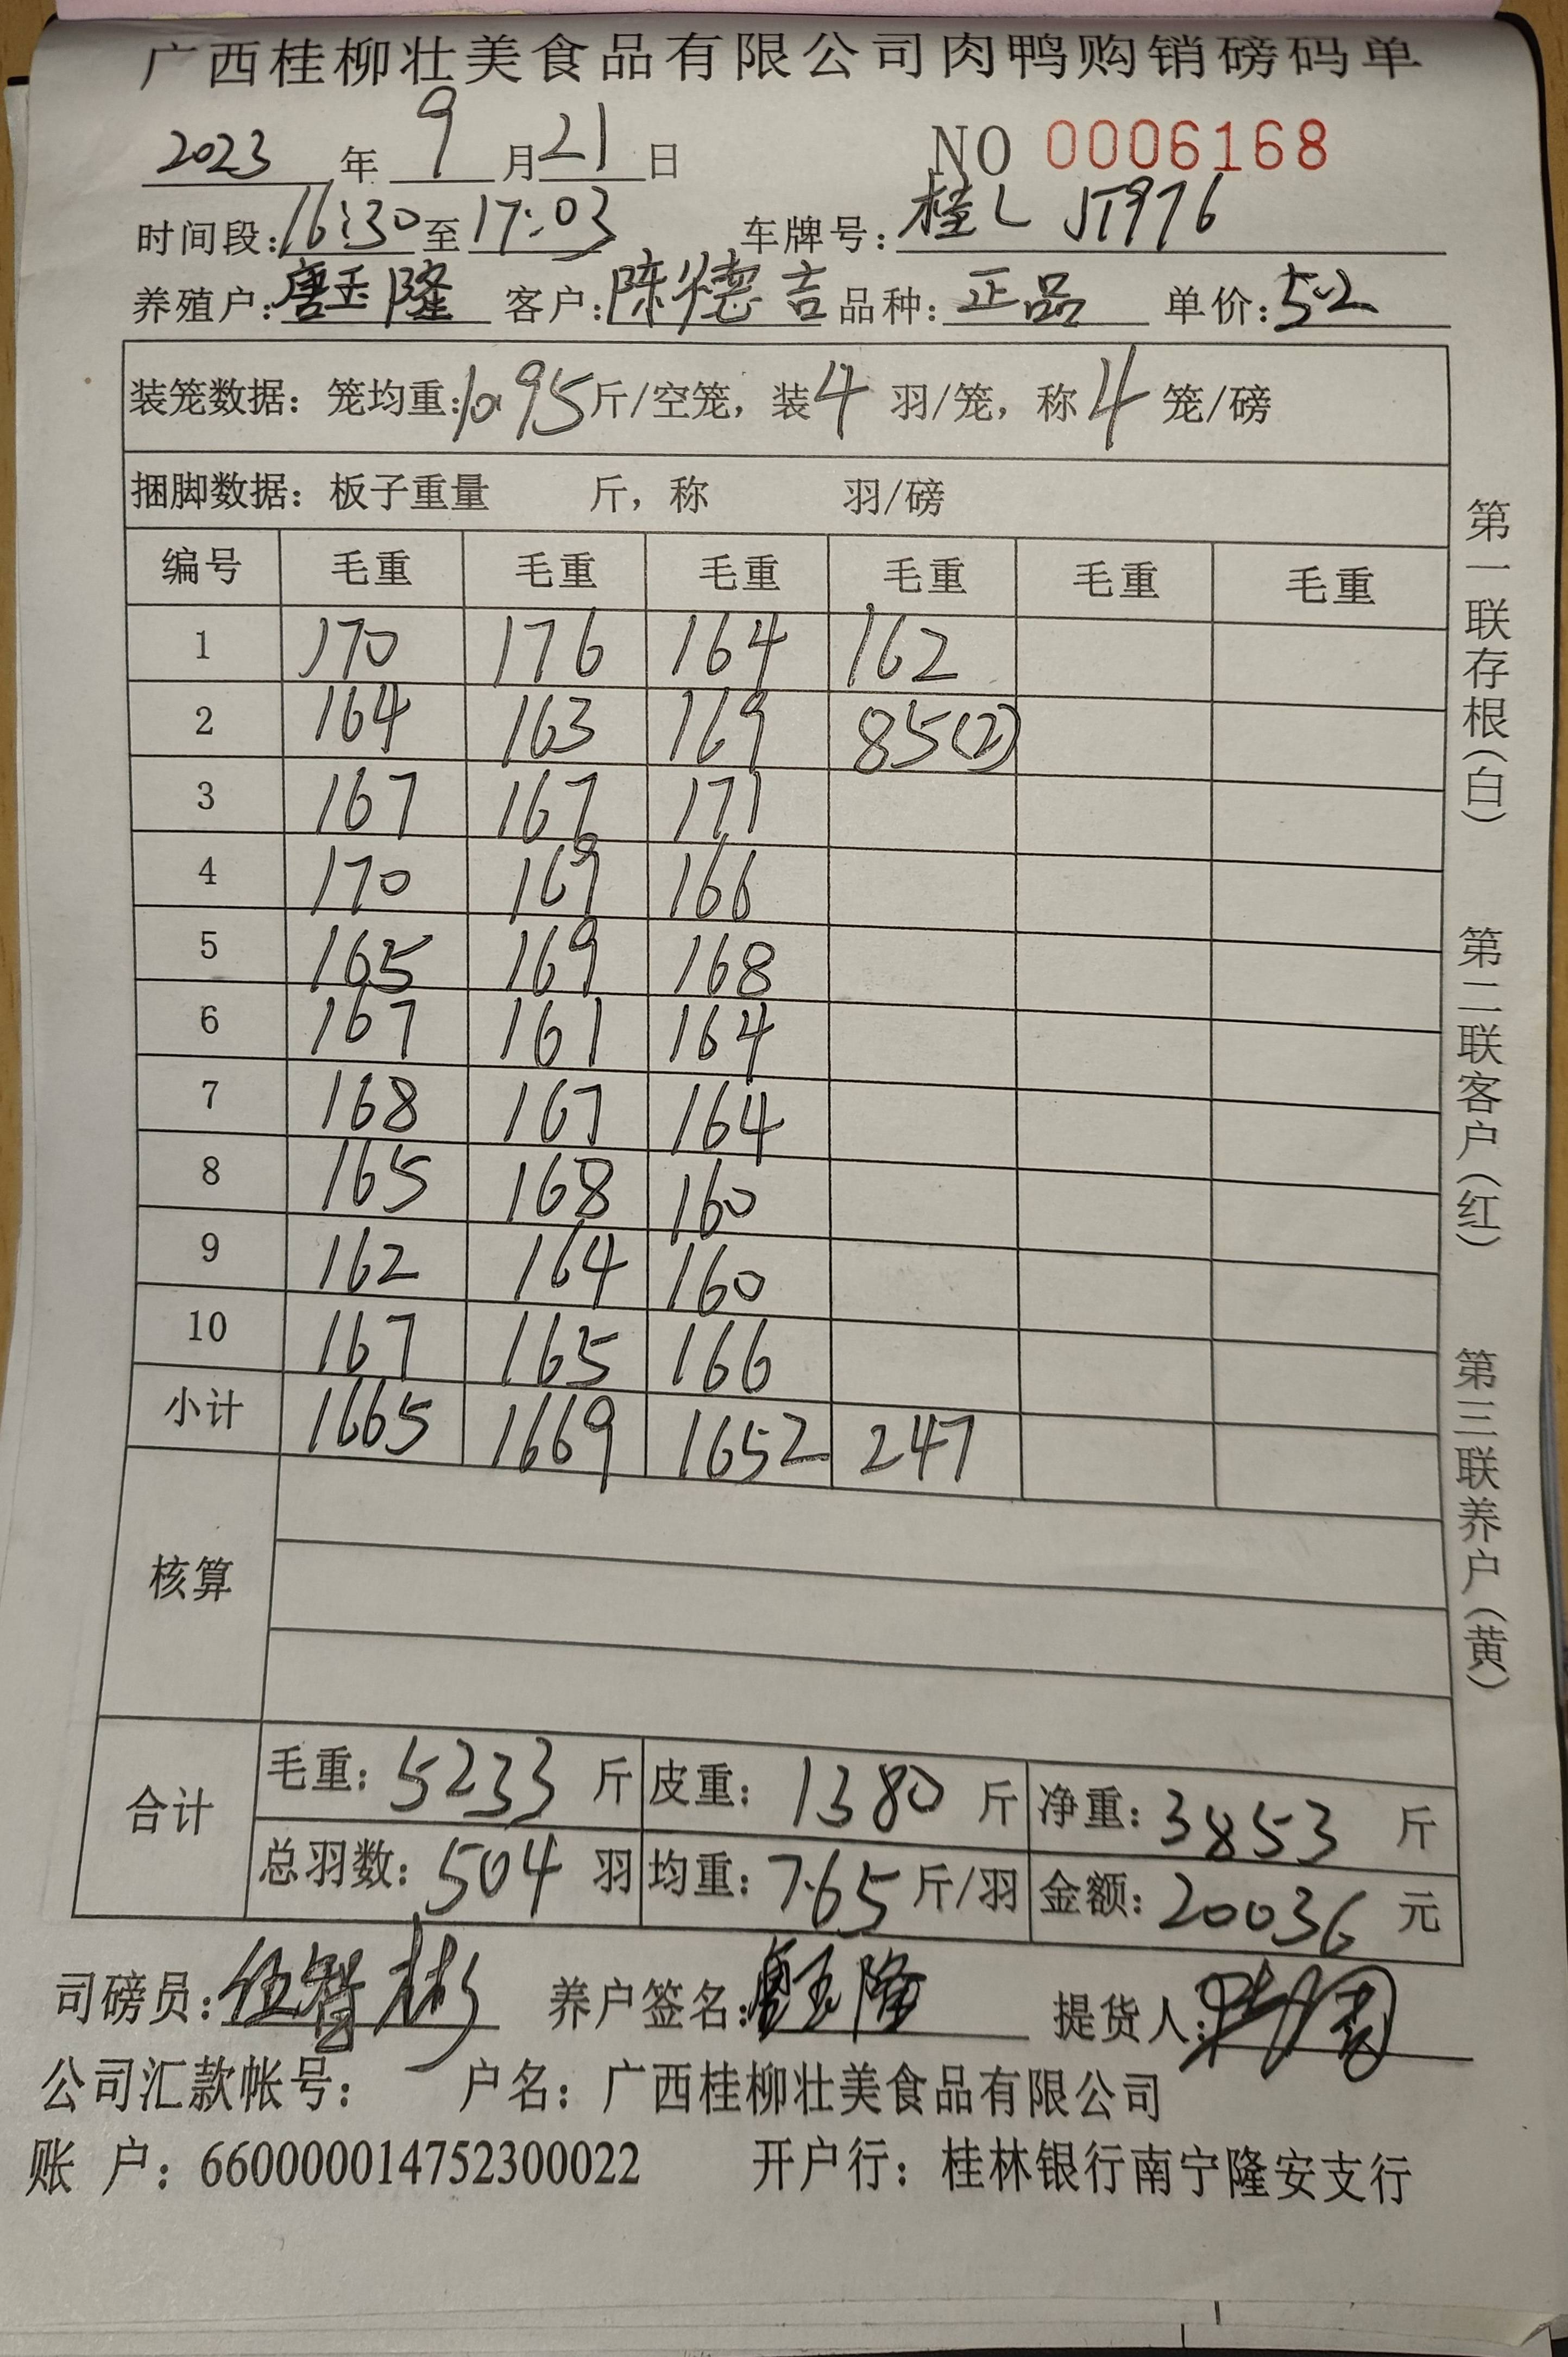 广西桂柳壮美食品有限公司肉鸭购销磅码单
2023 年 9 月 21 日 NO 0006168
时间段: 16:30 至 17:03 车牌号: 桂L JT976
养殖户: 唐玉隆 客户: 陈德吉 品种: 正品 单价: 5.2
装笼数据: 笼均重: 10.95 斤/空笼, 装 4 羽/笼, 称 4 笼/磅
捆脚数据: 板子重量 斤, 称 羽/磅
编号 毛重 毛重 毛重 毛重 毛重 毛重
1 170 176 164 162
2 164 163 169 85(2)
3 167 167 171
4 170 169 166
5 165 169 168
6 167 161 164
7 168 167 164
8 165 168 160
9 162 164 160
10 167 165 166
小计 1665 1669 1652 247
核算
合计 毛重: 5233 斤 皮重: 1380 斤 净重: 3853 斤
总羽数: 504 羽 均重: 7.65 斤/羽 金额: 20036 元
司磅员: 伍智彬 养户签名: 唐玉隆 提货人:
公司汇款帐号: 户名: 广西桂柳壮美食品有限公司
账 户: 660000014752300022 开户行: 桂林银行南宁隆安支行
第一联存根(白) 第二联客户(红) 第三联养户(黄)